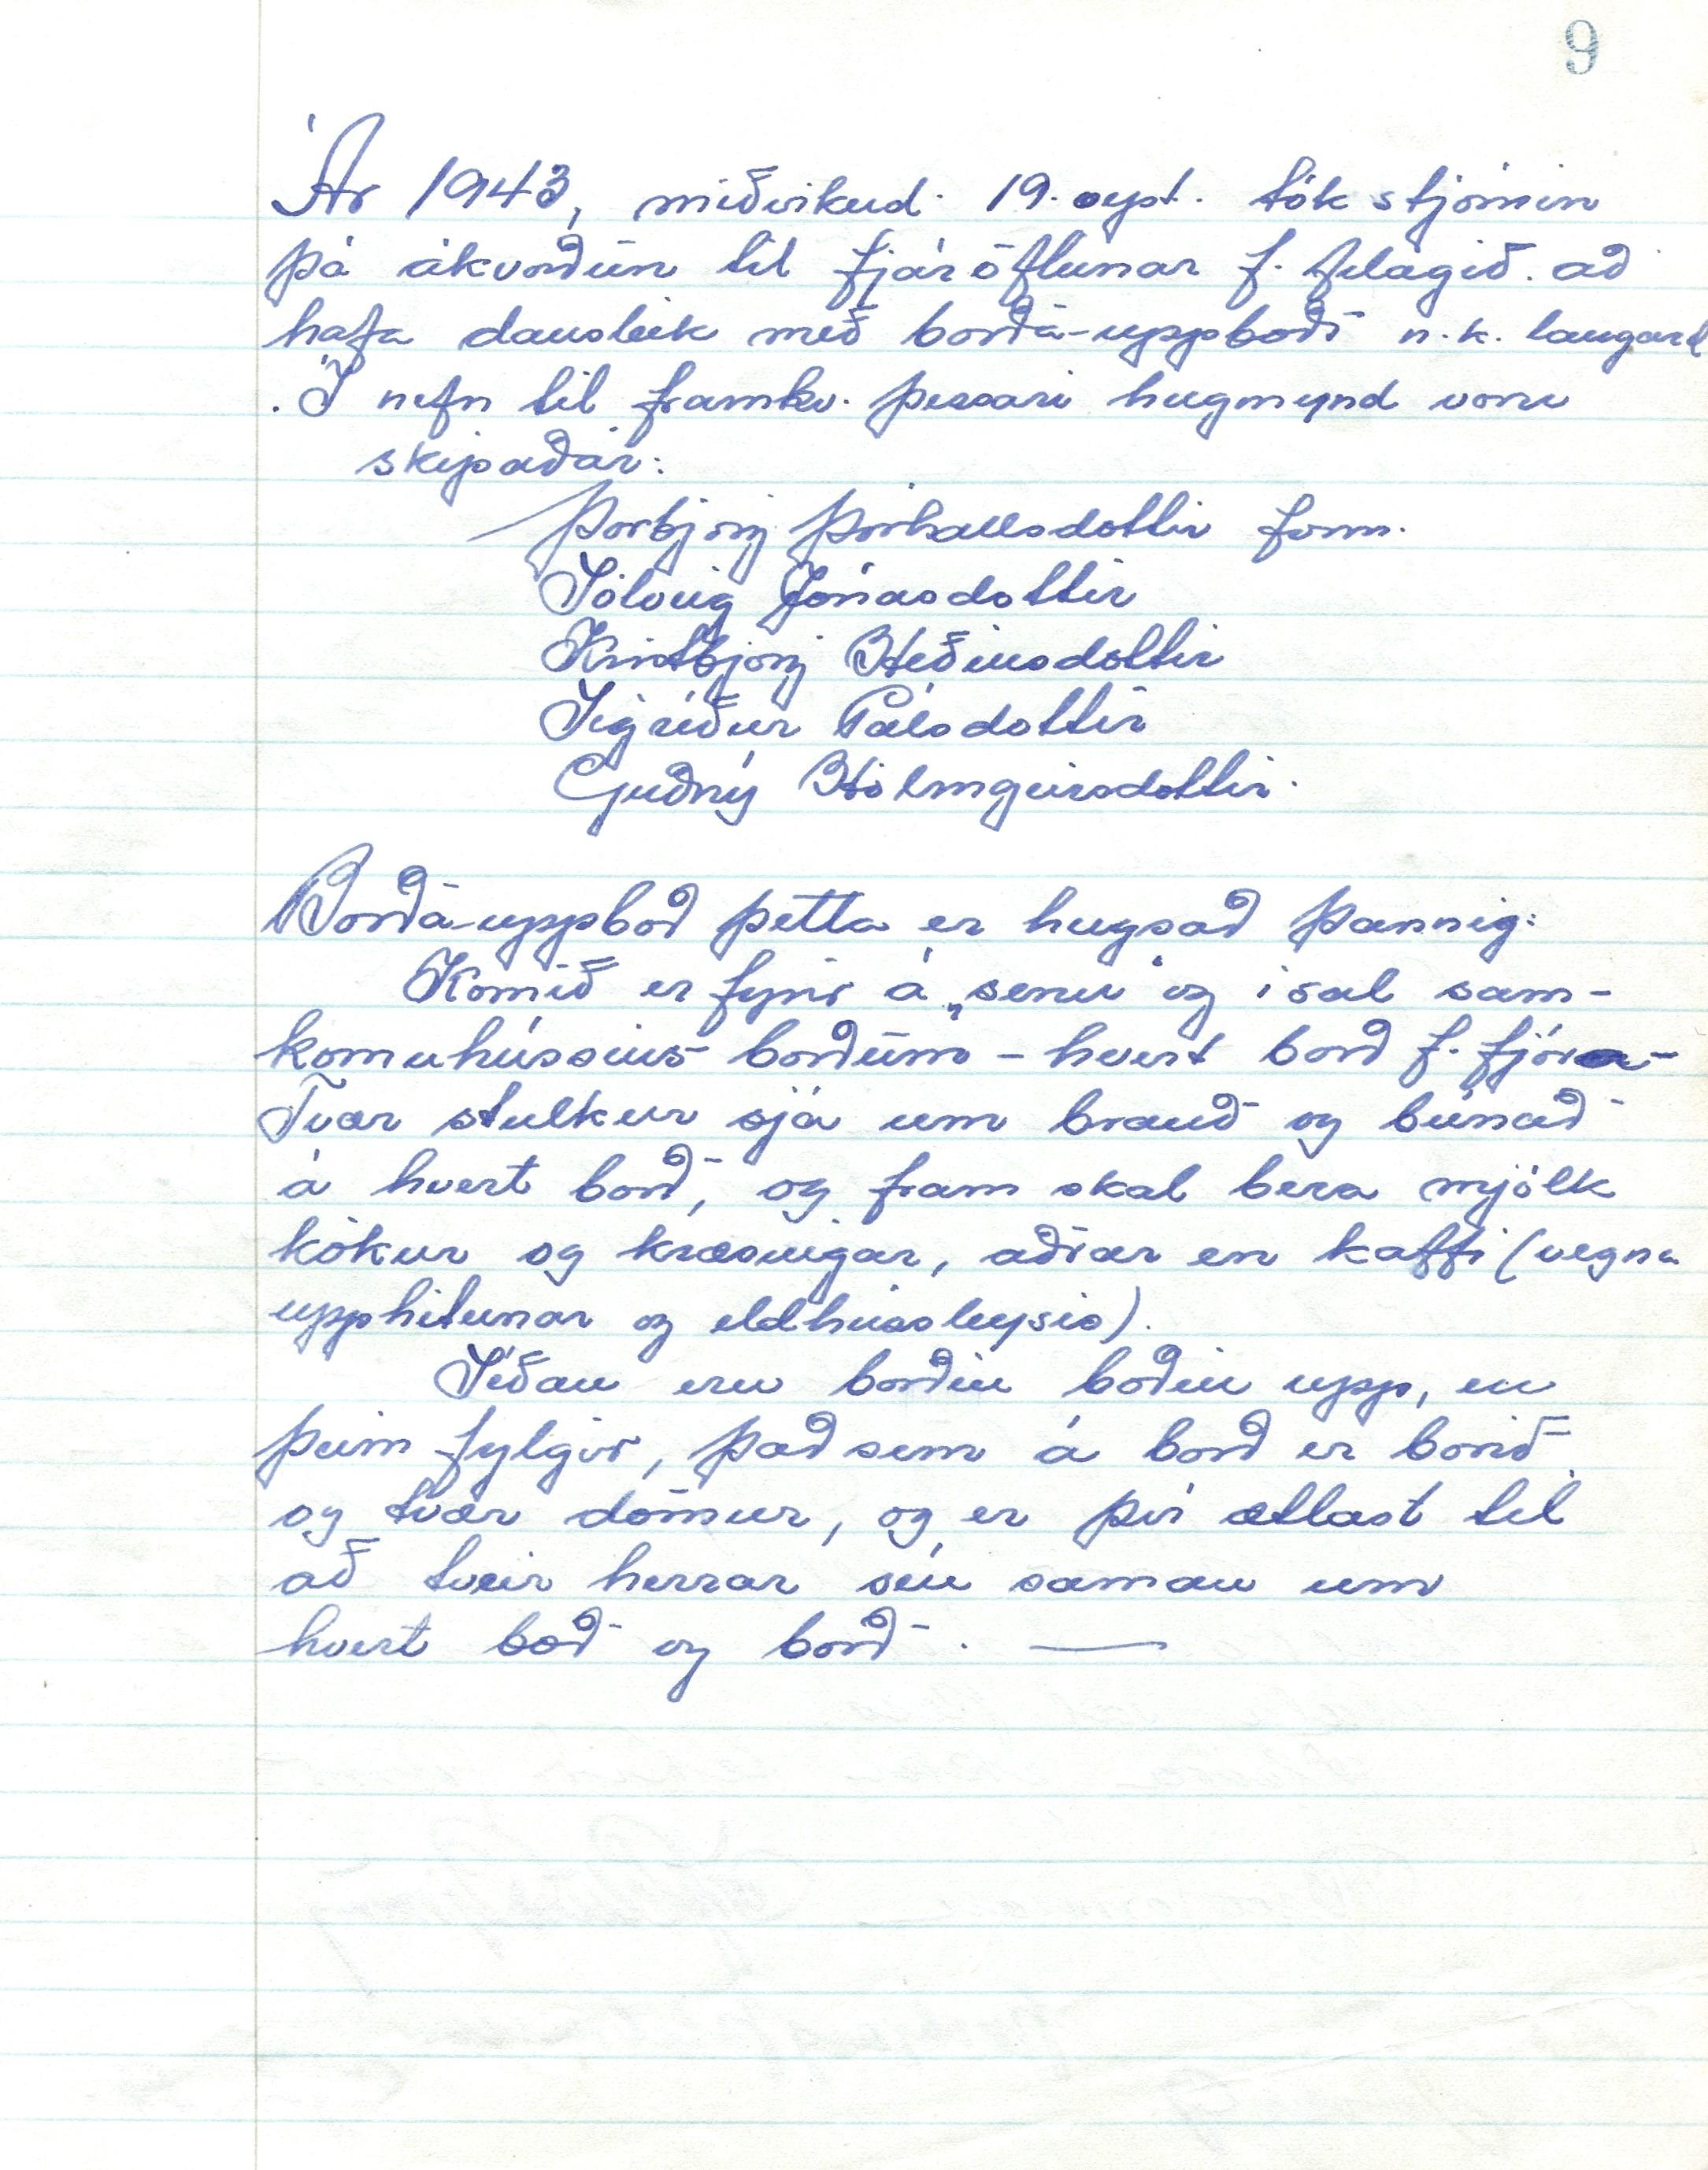 9
Ár 1943, miðvikud. 19. sept. tók stjórnin
þá ákvörðun til fjáröflunar f. félagið. að
hafa dansleik með borða-uppboði n.k. laugard
. Í nefn til framkv. þessari hugmynd voru
skipaðar:
Þorbjörg Þórhallsdóttir form.
Sólveig Jónasdóttir
Kristbjörg Héðinsdóttir
Sigríður Pálsdóttir
Guðný Hólmgeirsdóttir.
Borða-uppboð þetta er hugsað þannig:
Komið er fyrir á „senu" og í sal sam-
komuhússins borðum - hvert borð f. fjóra -
Tvær stulkur sjá um brauð og búnað
á hvert borð, og fram skal bera mjólk
kökur og kræsingar, aðrar en kaffi (vegna
upphitunar og eldhússleysis).
Síðan eru borðin boðin upp, en
þeim fylgir, það sem á borð er borið
og tvær dömur, og er því ætlast til
að tveir herrar séu saman um
hvert boð og borð. —